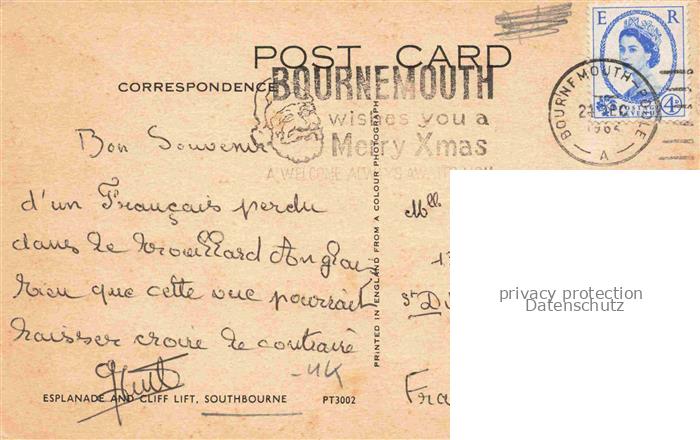 E R
POST CARD
CORRESPONDENCE
BOURNEMOUTH
wishes you a
Merry Xmas
A WELCOME ALWAYS AWAITS YOU
BOURNEMOUTH-POOLE
1964
A
4D
Bon Souvenir
d'un Français perdu
dans le brouillard Anglais
bien que cette vue pourrait
laisser croire le contraire
PRINTED IN ENGLAND FROM A COLOUR PHOTOGRAPH
Mll
St Di
Fra
UK
ESPLANADE AND CLIFF LIFT, SOUTHBOURNE
PT3002
privacy protection
Datenschutz